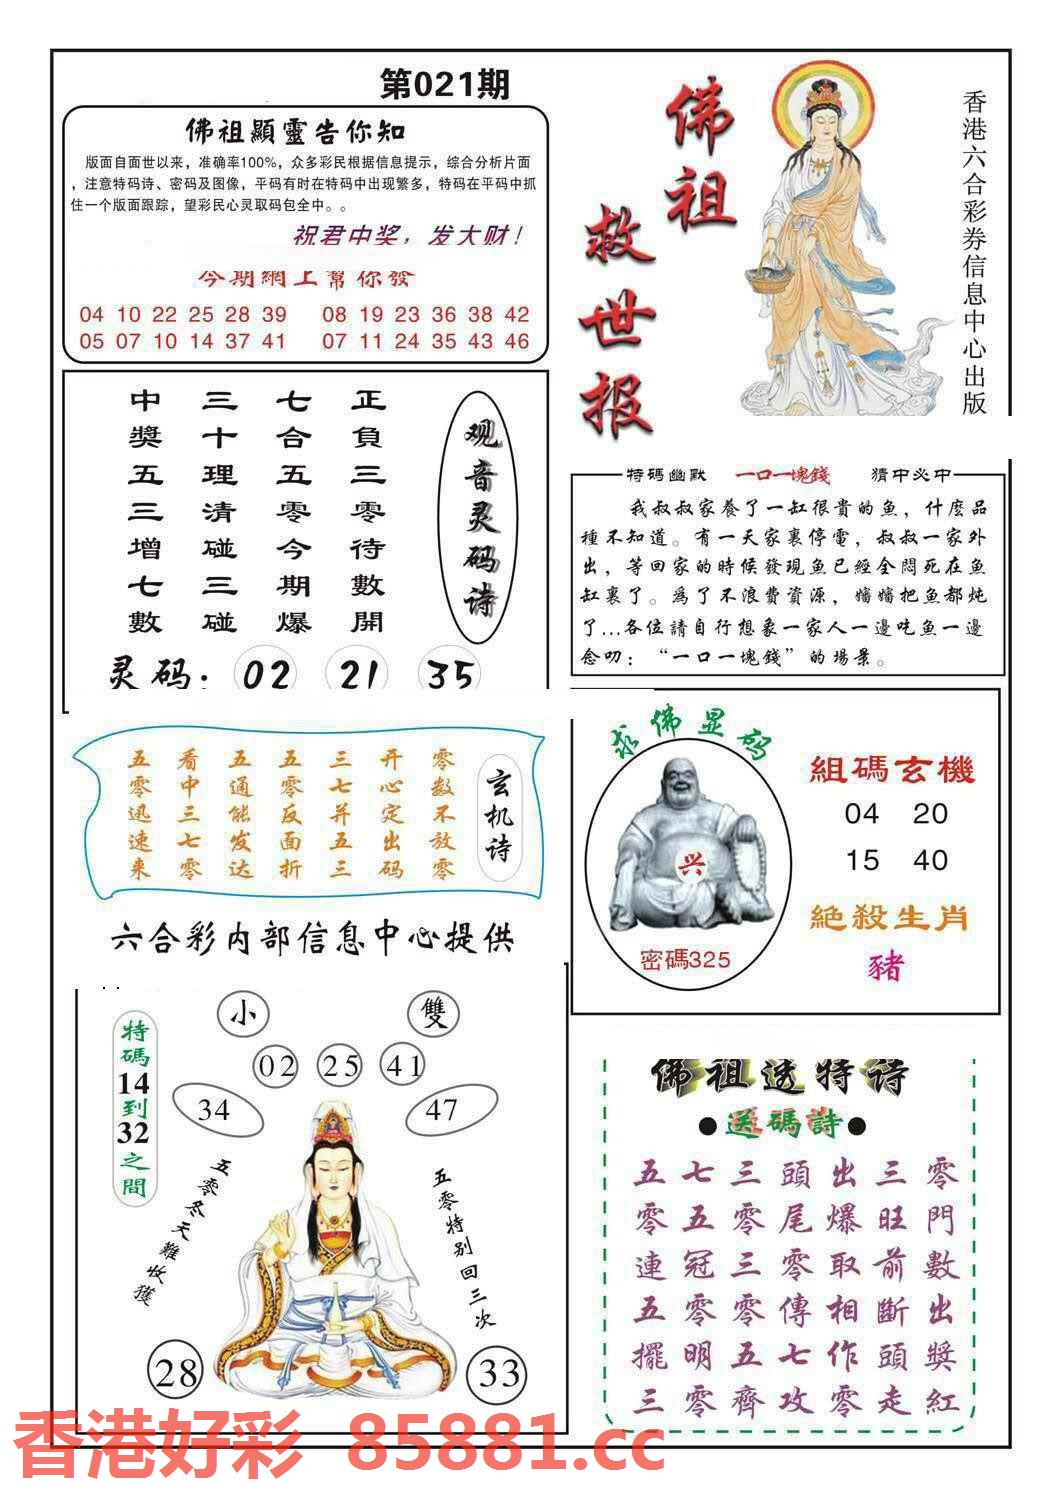 第021期
佛祖顯靈告你知
版面自面世以来，准确率100%，众多彩民根据信息提示，综合分析片面
，注意特码诗、密码及图像，平码有时在特码中出现繁多，特码在平码中抓
住一个版面跟踪，望彩民心灵取码包全中。。
祝君中奖，发大财！
今期網上幫你發
04 10 22 25 28 39 08 19 23 36 38 42
05 07 10 14 37 41 07 11 24 35 43 46
佛祖
救世报
香港六合彩券信息中心出版
观音灵码诗
正負三零待數開
七合五零今期爆
三十理清碰三碰
中獎五三增七數
灵码：02 21 35
特碼幽默 一口一塊錢 猜中必中
我叔叔家養了一缸很貴的鱼，什麽品
種不知道。有一天家裏停電，叔叔一家外
出，等回家的時候發現魚已經全悶死在魚
缸裏了。爲了不浪費資源，嬸嬸把魚都炖
了...各位請自行想象一家人一邊吃魚一邊
念叨：“一口一塊錢”的場景。
玄机诗
零数不放零
开心定出码
三七并五三
五零反面折
五通能发达
看中三七零
五零迅速来
六合彩内部信息中心提供
求佛显码
兴
密碼325
組碼玄機
04 20
15 40
絕殺生肖
豬
特碼14到32之間
小 雙
02 25 41
34 47
五零冬天難收獲
五零特别回三次
28 33
佛祖透特诗
●送碼詩●
五七三頭出三零
零五零尾爆旺門
連冠三零取前數
五零零傳相斷出
擺明五七作頭獎
三零齊攻零走紅
香港好彩 85881.cc